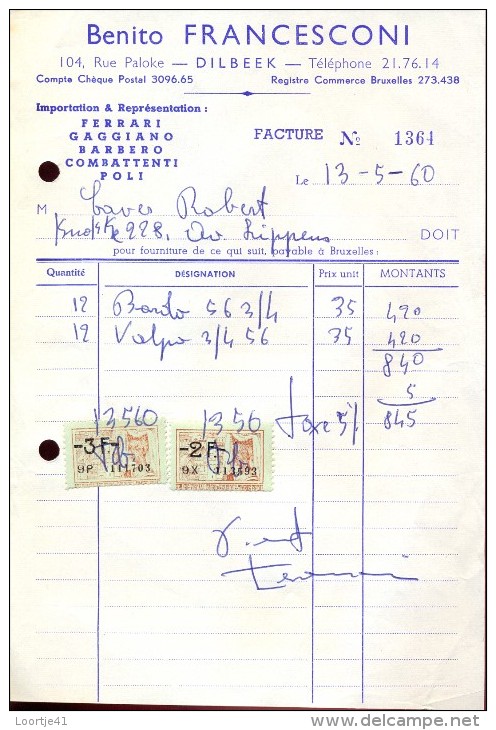 Benito FRANCESCONI
104, Rue Paloke — DILBEEK — Téléphone 21.76.14
Compte Chèque Postal 3096.65 Registre Commerce Bruxelles 273.438
Importation & Représentation :
FERRARI
GAGGIANO
BARBERO
COMBATTENTI
POLI
FACTURE № 1364
Le 13-5-60
M Robert
228, Av Lippens DOIT
pour fourniture de ce qui suit, payable à Bruxelles :
Quantité DÉSIGNATION Prix unit MONTANTS
12 Bardo 56 3/4 35 420
12 Valpo 3/4 56 35 420
840
5
13560 1356 taxe 5% 845
-3F- -2F-
9P 111703 9X 113593
Loortje41
delcampe.net